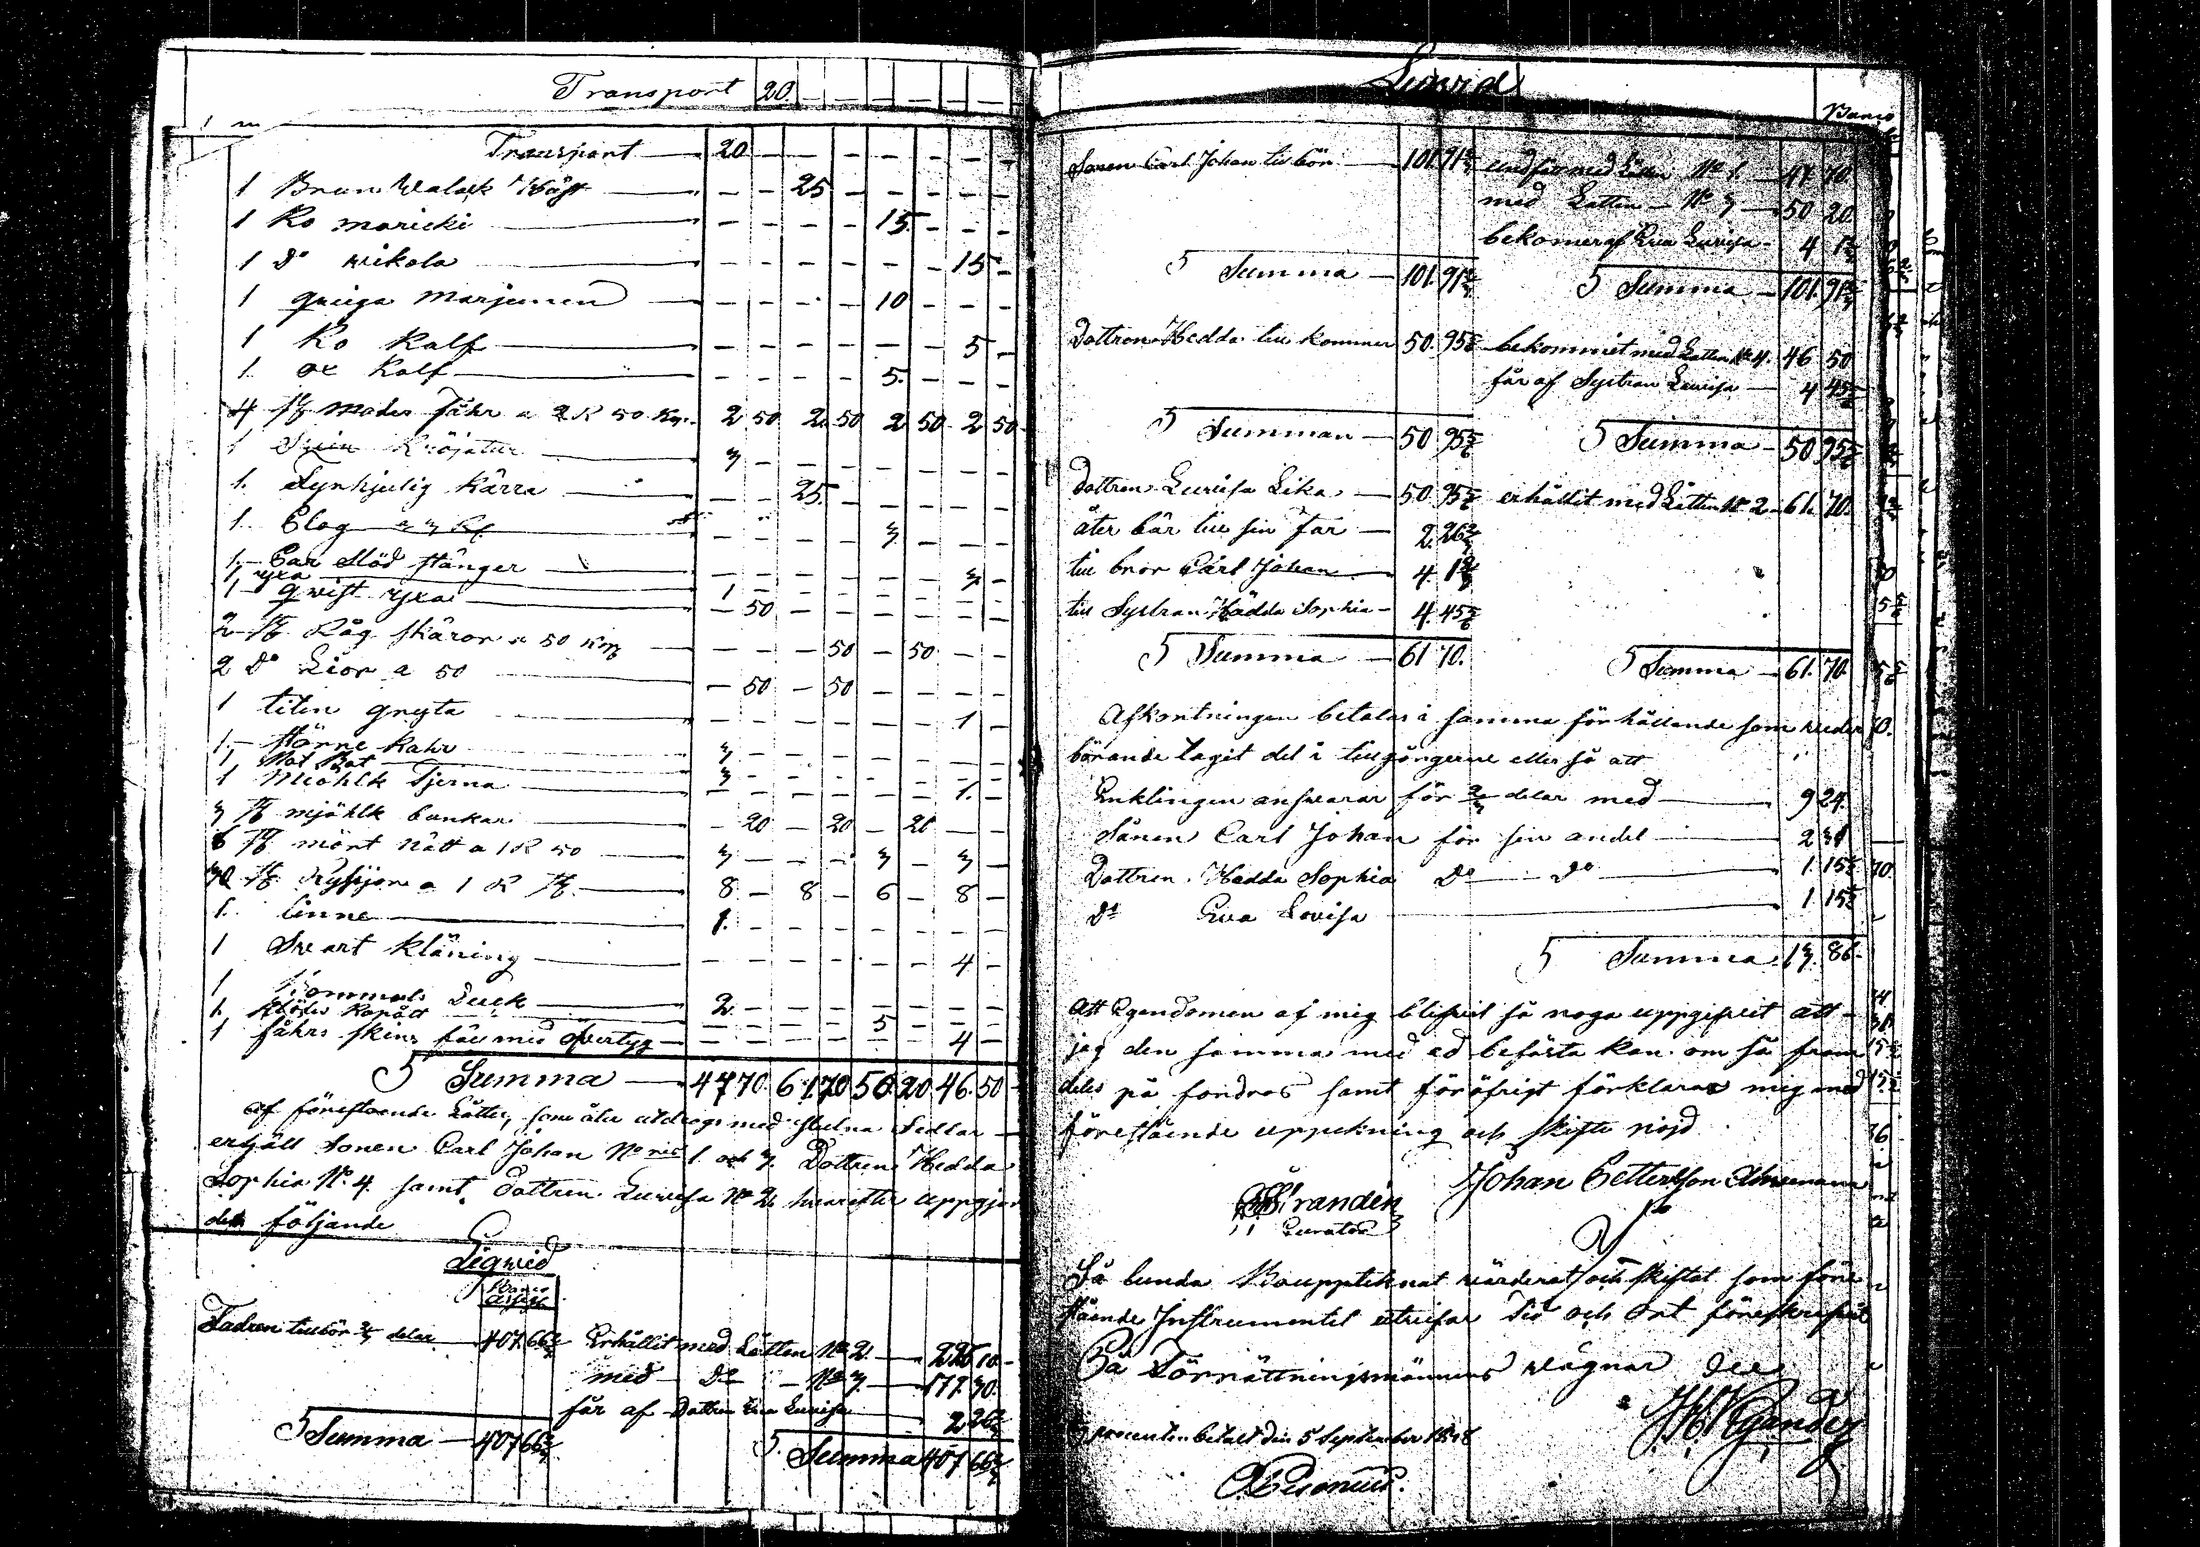 Transport 20. — — — — — —
Transport — 20 — — — — — — —
1 Brun Walack Häst — — — 25 — — — — —
1 Ko mansicki — — — — — 15 — — —
1 D:o wikola — — — — — — — 15 —
1 quiga Marjunen — — — — — 10 — — —
1 Ko Kalf — — — — — — — 5 —
1. ox Kalf — — — — — 5. — — —
4 st moder Fåhr a 2 R 50 Kp. 2 50 2 50 2 50 2 50
1 3 — — — — — — —
1. Tynhjulig Kärra — — — 25. — — — — —
1. Plog a 3 R — — — — 3 — — —
1. Par Slöd stänger — — — — — — 3 —
1 yxa 1 — — — — — — —
1 qwist yxa — 50 — — — — — —
2 st Råg skäror a 50 Kp — — — 50 — 50 — —
2 D:o Lior a 50 — 50 — 50 — — — —
1 titin gryta — — — — — — 1 —
1 Störne Kahr 3 — — — — — — —
1 Not Båt 3 — — — — — — —
1 Miöhlk Tjerna — — — — — — 1. —
3 st mjöhlk bunkar — 20 — 20 — 20 — —
6 st mört Nätt a 1 R 50 3 — — — 3 — 3 —
30 st Ryssjor a 1 R st 8 — 8 — 6 — 8 —
1. linne 1. — — — — — — —
1 Swart kläning — — — — — — 4 —
1 Bommuls Duck 2 — — — — — — —
1. Klädes Kapått — — — — 5 — — —
1 fåhrs skins med öfvertyg — — — — — — 4 —
Summa — 47 70 61 70 50 20 46 50
af förestående Lotter, som äro utdragne med slutna Sedlar
erhåll Sonen Carl Johan N:ris 1. och 3. Dottren Hedda
Sophia N:o 4. samt Dottren Luvisa N:o 2. hvarefter uppgjor
des följande
Liqvid
Banco
Assign
Fadren tillbör ⅔ delar 407 66⅔ Erhållit med Lotten N:o 2. 228 10
med D:o N:o 3. 177. 30.
får af Dottren Eva Luvisa 2 26⅔
Summa 407 66⅔ Summa 407 66⅔
Liqvid
Banco
Sonen Carl Johan till bör 101. 91⅔ undfått med Lotten N:o 1. 47 70
med Lotten N:o 3 50 20.
bekomer af Eva Luvisa 4 1⅔
Summa 101. 91⅔ Summa 101. 91⅔
Dottren Hedda till kommer 50. 95⅚ bekommit med Lotten N:o 4. 46 50
får af Systran Luvisa 4 45⅚
Summan 50 95⅚ Summa 50 95⅚
Dottren Luvisa Lika 50. 95⅚ erhållit med Lotten N:o 2 61. 70.
åter bär till sin Far 2. 26⅔
till bror Carl Johan 4. 1⅔
till Systran Hedda Sophia 4. 45⅚
Summa 61 70. Summa 61. 70.
Afkortningen betalas i samma förhållande som weder
börande tagit del i tillgångerne eller så att
Enklingen answarar för ⅔ delar med 9 24.
Sånen Carl Johan för sin andel 2 31
Dottren Hedda Sophia D:o D:o 1. 15½
D:o Eva Lovisa 1. 15½
Summa 13. 86.
Att Egendomen af mig blifvit så noga uppgifvit att
jag den samma med ed befästa kan om så fram
deles på fordras samt föröfrigt förklaras mig med
förestående uppteckning och skifte nöjd
Johan Pettersson
Strandén
Curator
Så lunda Bouppteknat wärderat och skiftat som före
stående Instrumentet utvisar Tid och Ort föreskrifvit
På Förrättningsmännens wägnar
procenten betalt den 5 September 1848